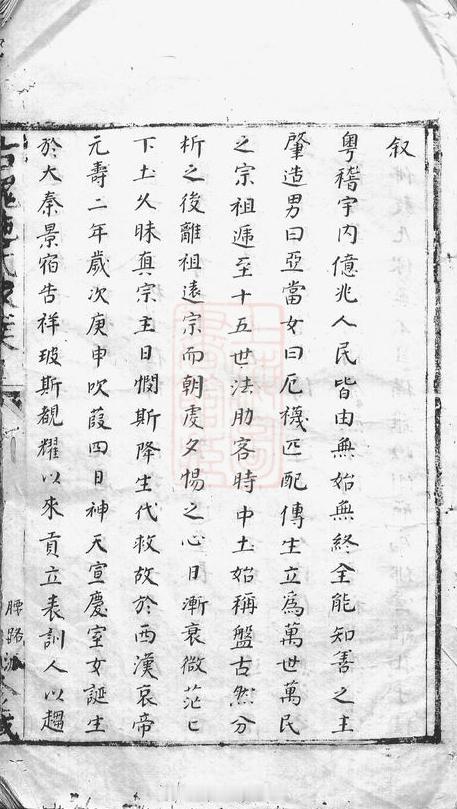 叙
粤稽宇内億兆人民皆由無始無終全能知善之主
肇造男曰亞當女曰厄襪匹配傳生立為萬世萬民
之宗祖遞至十五世法肋客時中土始稱盤古然分
析之後離祖遠宗而朝虔夕惕之心日漸衰微茫〻
下土久昧真宗主日憫斯降生代救故於西漢哀帝
元壽二年歲次庚申吹葭四日神天宣慶室女誕生
於大秦景宿告祥玻斯覩耀以來貢立表訓人以趨
氏
腰路